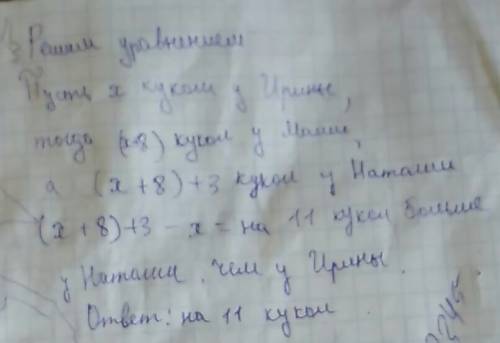 Решим уравнением
Пусть x кукол у Ирины,
тогда (x+8) кукол у Маши,
а (x+8)+3 кукол у Наташи
(x+8)+3-x= на 11 кукол больше
у Наташи, чем у Ирины.
Ответ: на 11 кукол